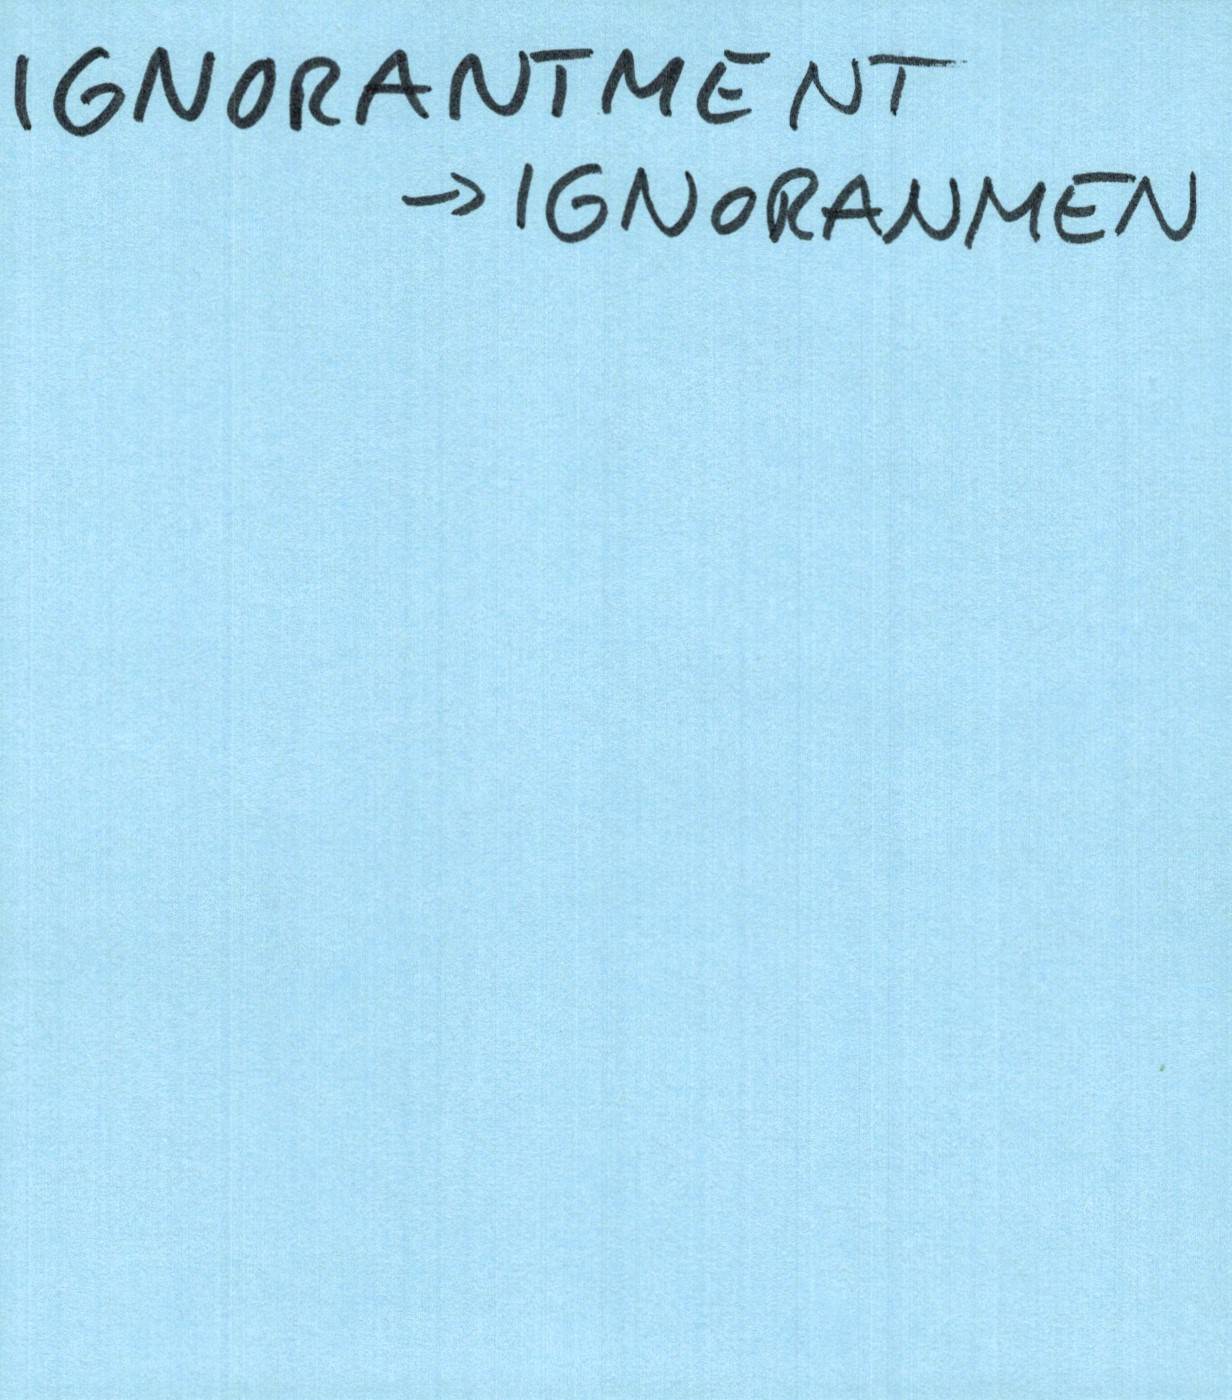 IGNORANTMENT
→ IGNORANMEN